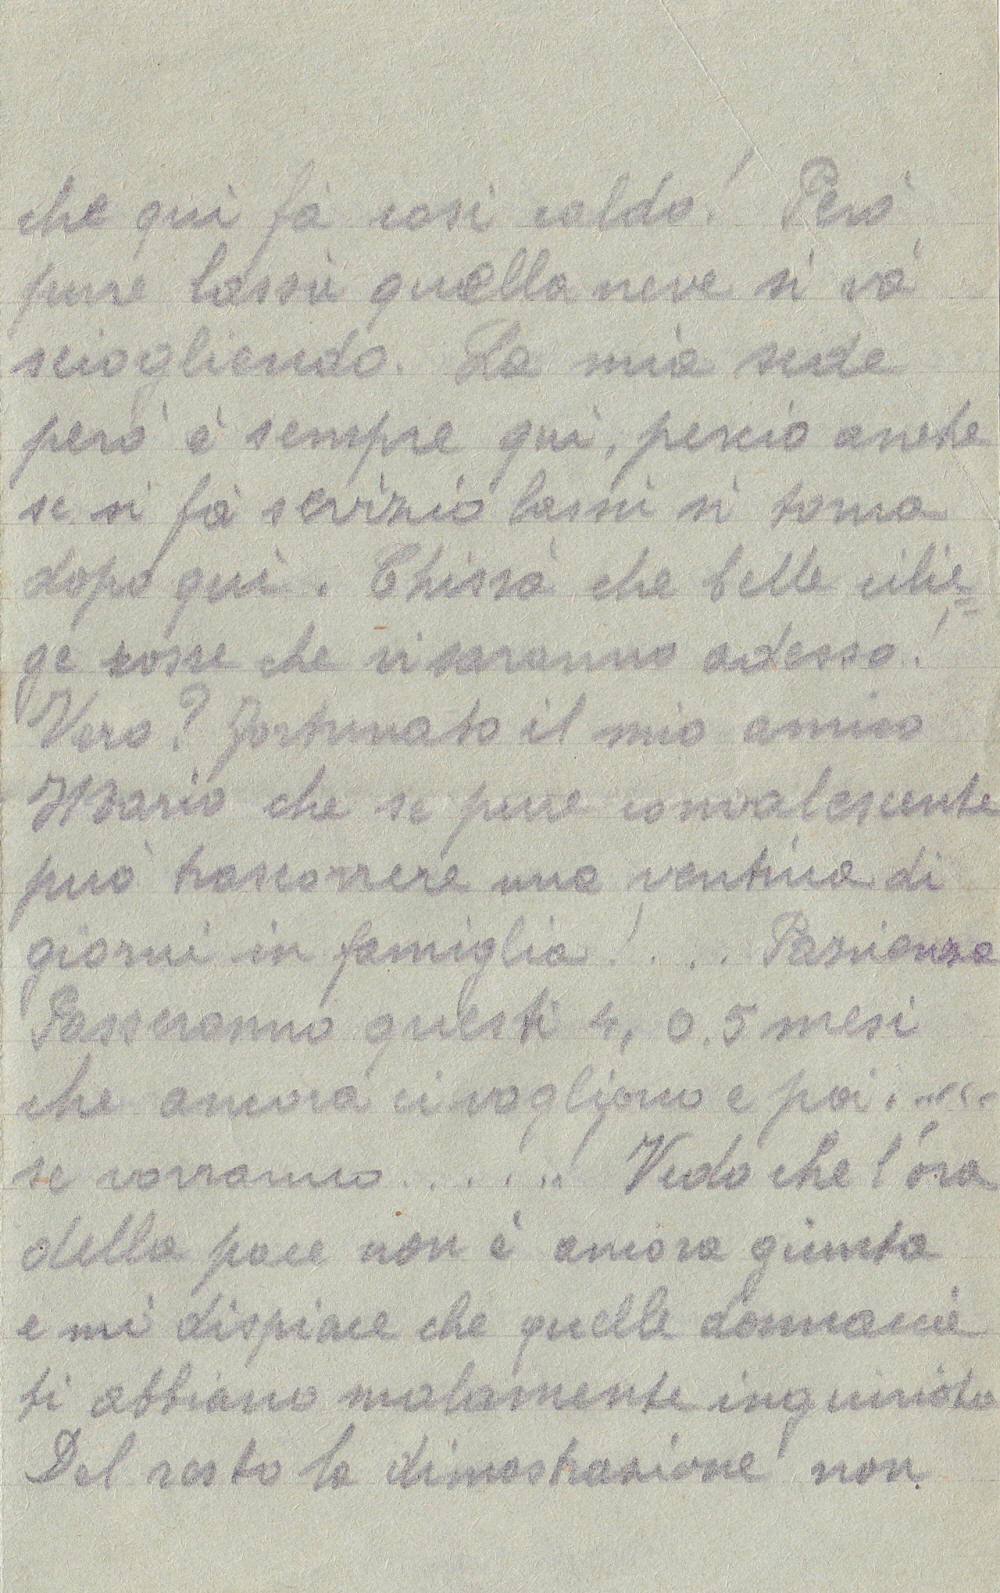 che qui fà così caldo! Però
pure lassù quella neve si và
sciogliendo. La mia sede
però è sempre qui, perciò anche
se si fà servizio lassù si torna
dopo qui. Chissà che belle cilie=
ge rosse che vi saranno adesso!
Vero? Fortunato il mio amico
Mario che se pure convalescente
può trascorrere una ventina di
giorni in famiglia! . . . . Pazienza
Passeranno questi 4, o 5 mesi
che ancora ci vogliono e poi.....
se vorranno...... Vedo che l'ora
della pace non è ancora giunta
e mi dispiace che quelle donnacie
ti abbiano malamente inquirito
Del resto la dimostrazione non